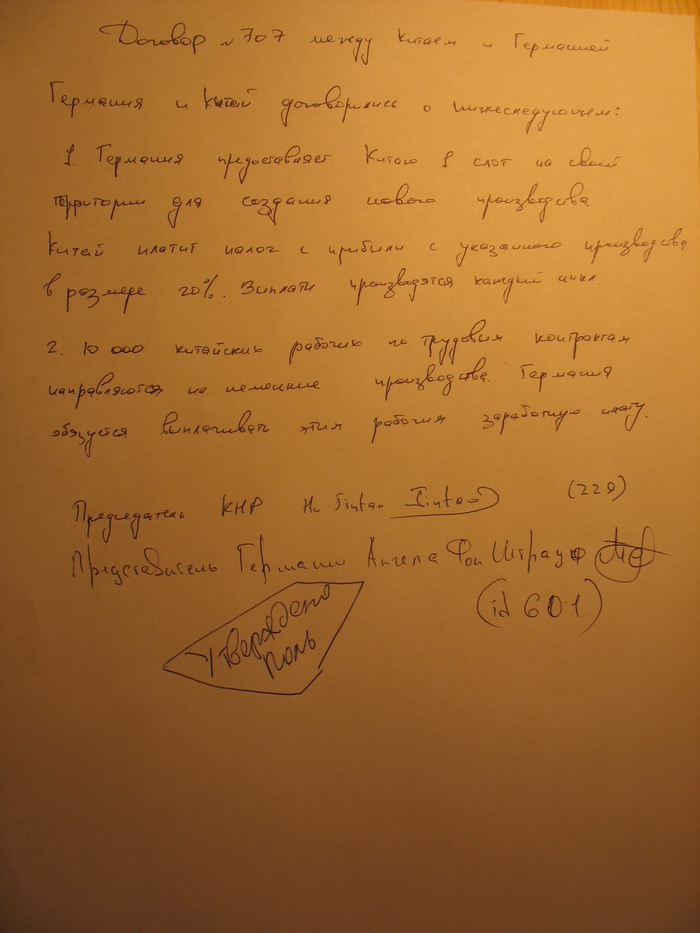 Договор №707 между Китаем и Германией
Германия и Китай договорились о нижеследующем:
1. Германия предоставляет Китаю 1 слот на своей
территории для создания нового производства.
Китай платит налог с прибыли с указанного производства
в размере 20%. Выплаты производятся каждый цикл.
2. 10 000 китайских рабочих по трудовым контрактам
направляются на немецкие производства. Германия
обязуется выплачивать этим рабочим заработную плату.
Председатель КНР Hu Jintao Jintao (229)
Представитель Германии Ангела Фон Штрауф
(id 601)
Утверждено
Поль